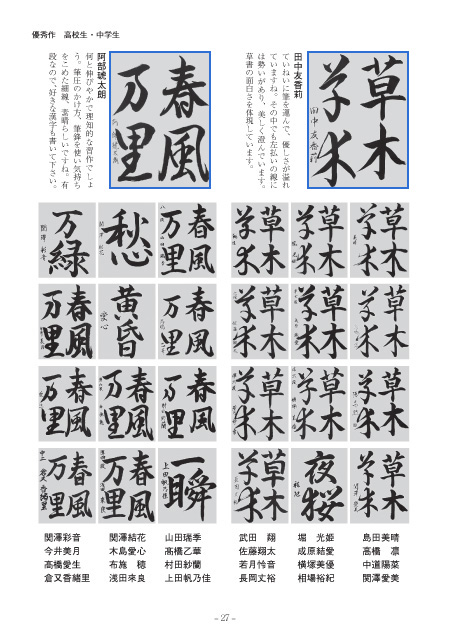 優秀作　高校生・中学生
草木
草木
田中友香莉
ていねいに筆を運んで、優しさが溢れ
ていますね。その中でも左払いの線に
は勢いがあり、美しく澄んでいます。
草書の面白さを体現しています。
春風
万里
阿部琥太朗
何と伸びやかで理知的な習作でしょ
う。筆圧のかけ方、筆鋒を使い気持ち
をこめた細線、素晴らしいですね。有
段なので好きな漢字も書いて下さい。
草木
草木
草木
草木
草木
草木
春風
万里
愁心
万緑
草木
草木
草木
草木
草木
草木
春風
万里
黄昏
愛心
春風
万里
草木
草木
草木
草木
草木
草木
春風
万里
春風
万里
春風
万里
草木
草木
夜桜
草木
草木
一瞬
上田帆乃佳
春風
万里
春風
万里
関澤彩音　関澤結花　山田瑞季　武田　翔　堀　光姫　島田美晴
今井美月　木島愛心　高橋乙華　佐藤翔太　成原結愛　高橋　凛
高橋愛生　布施　穂　村田紗蘭　若月怜音　横塚美優　中道陽菜
倉又香緒里　浅田來良　上田帆乃佳　長岡丈裕　相場裕紀　関澤愛美
– 27 –